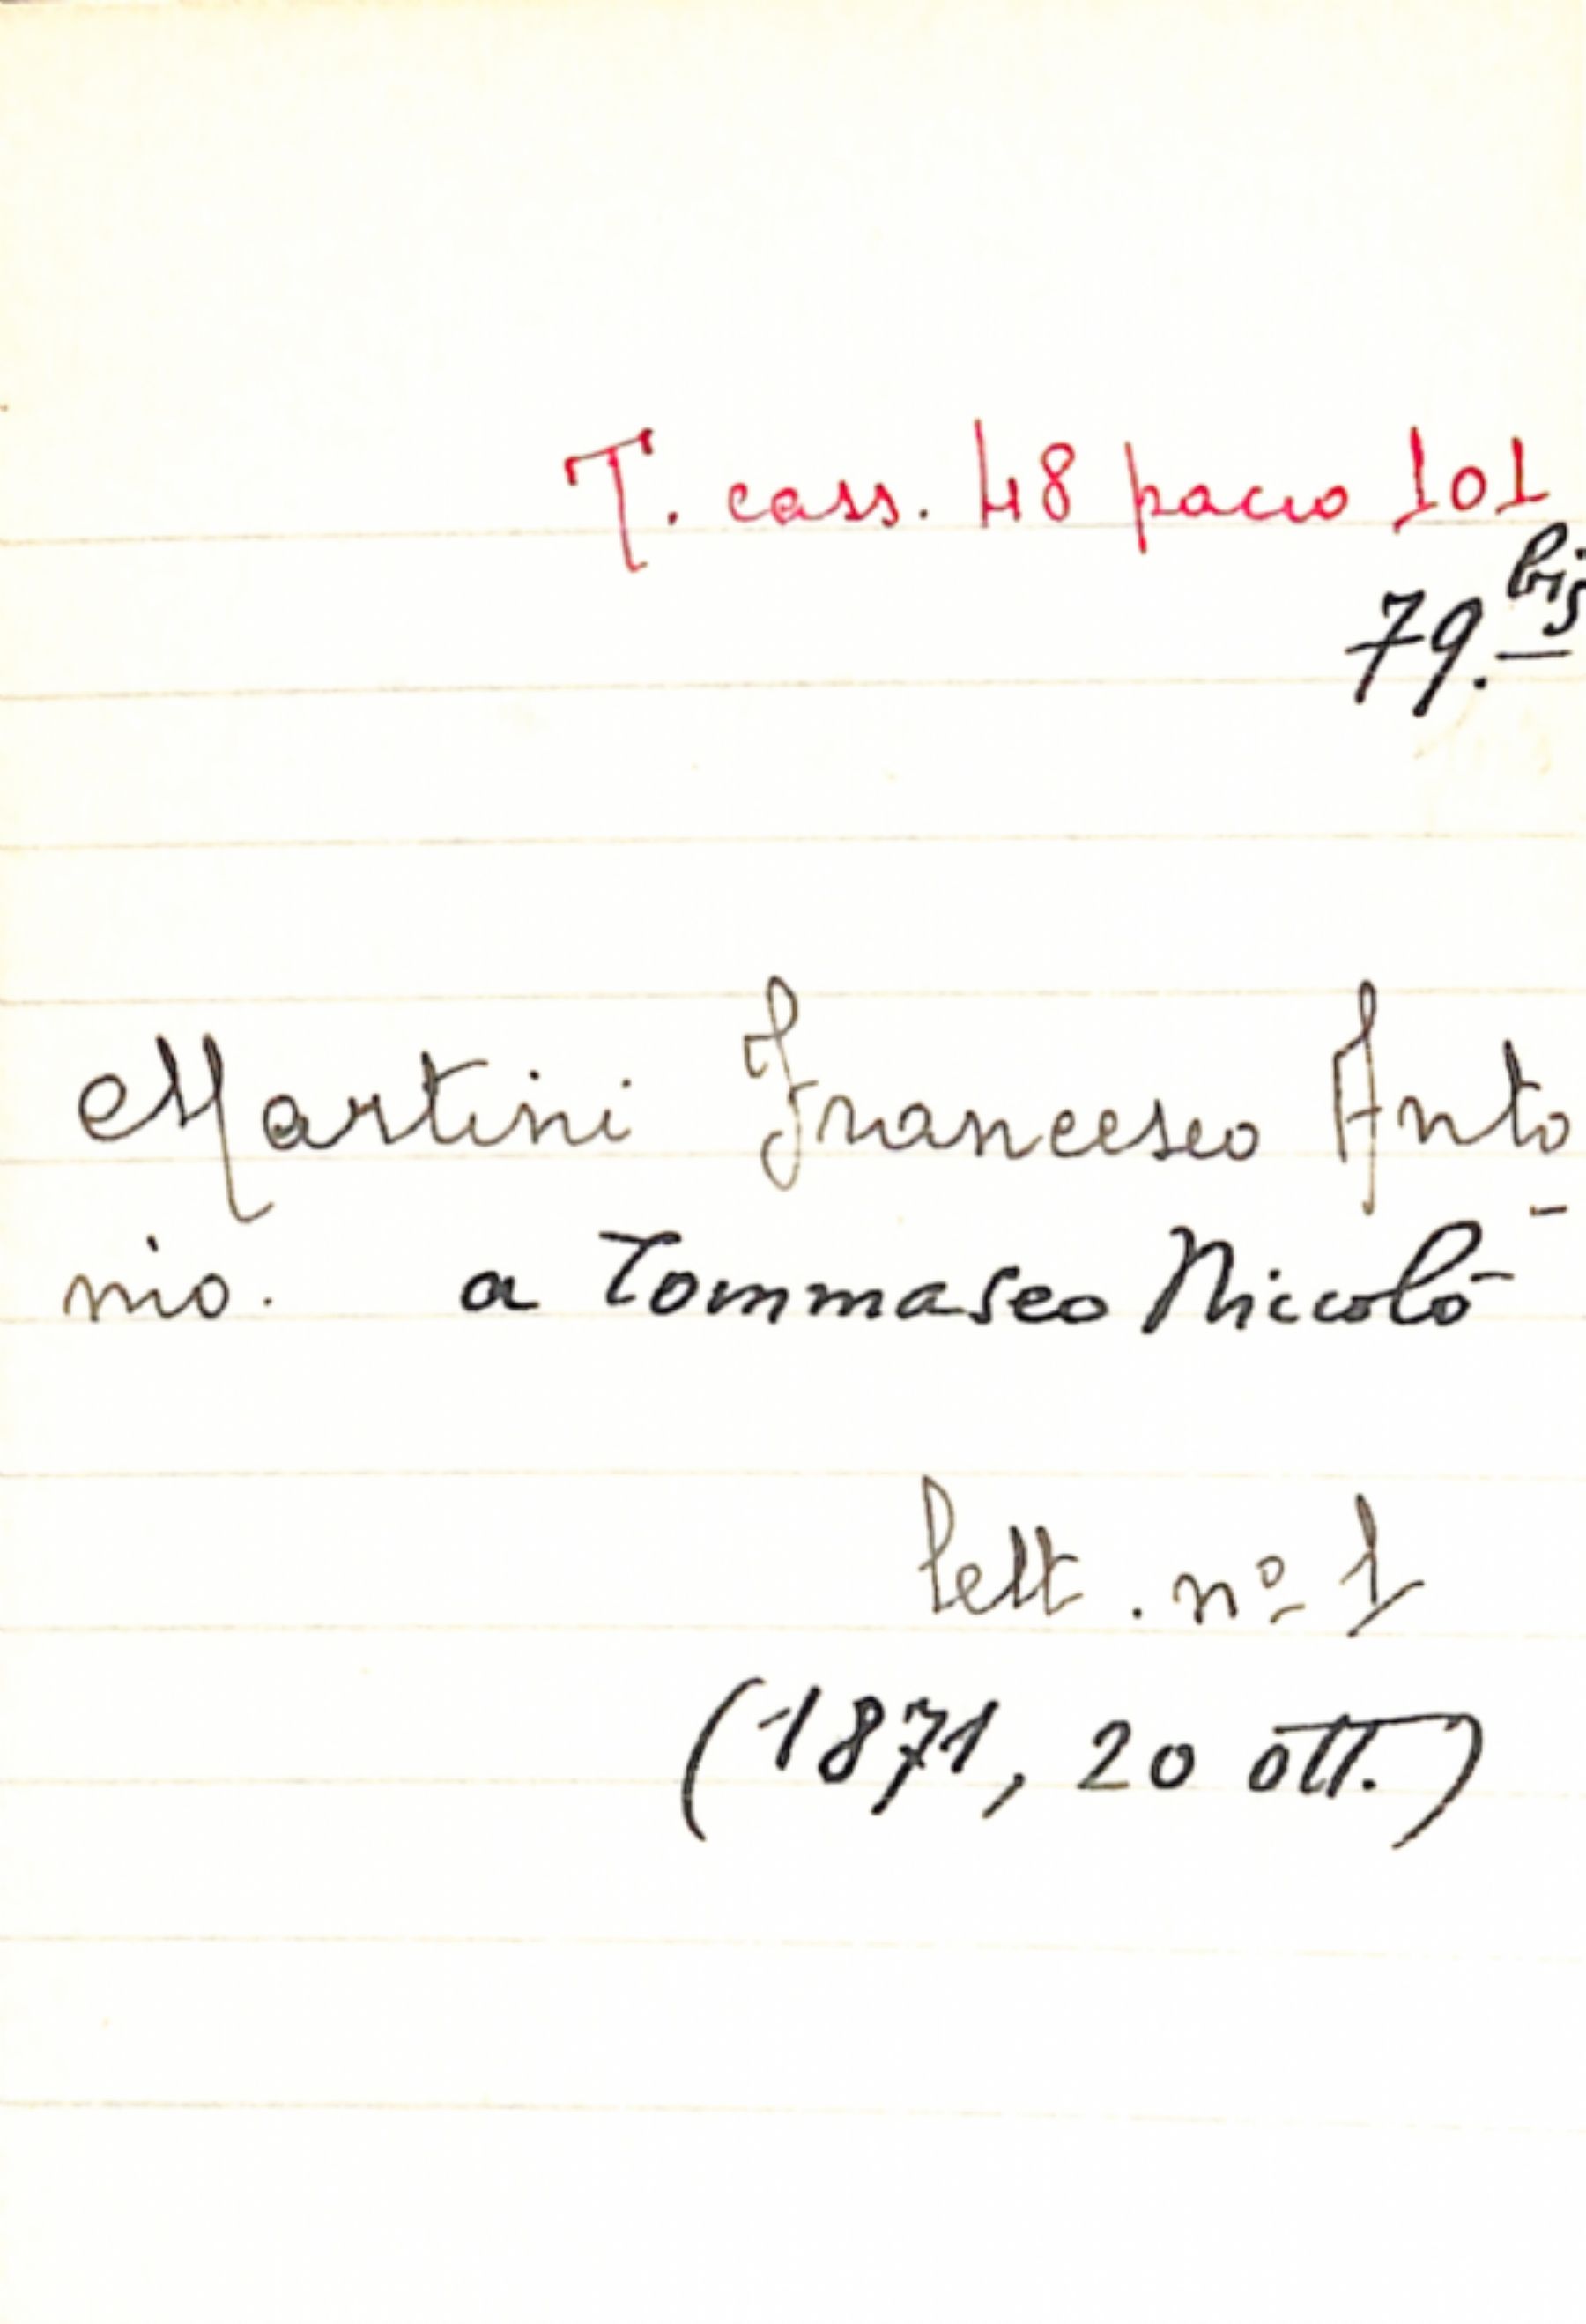 T. cass. 48 pacco 101
79. bis
Martini Francesco Anto-
nio. a Tommaseo Niccolò
lett. nº 1
(1871, 20 ott.)